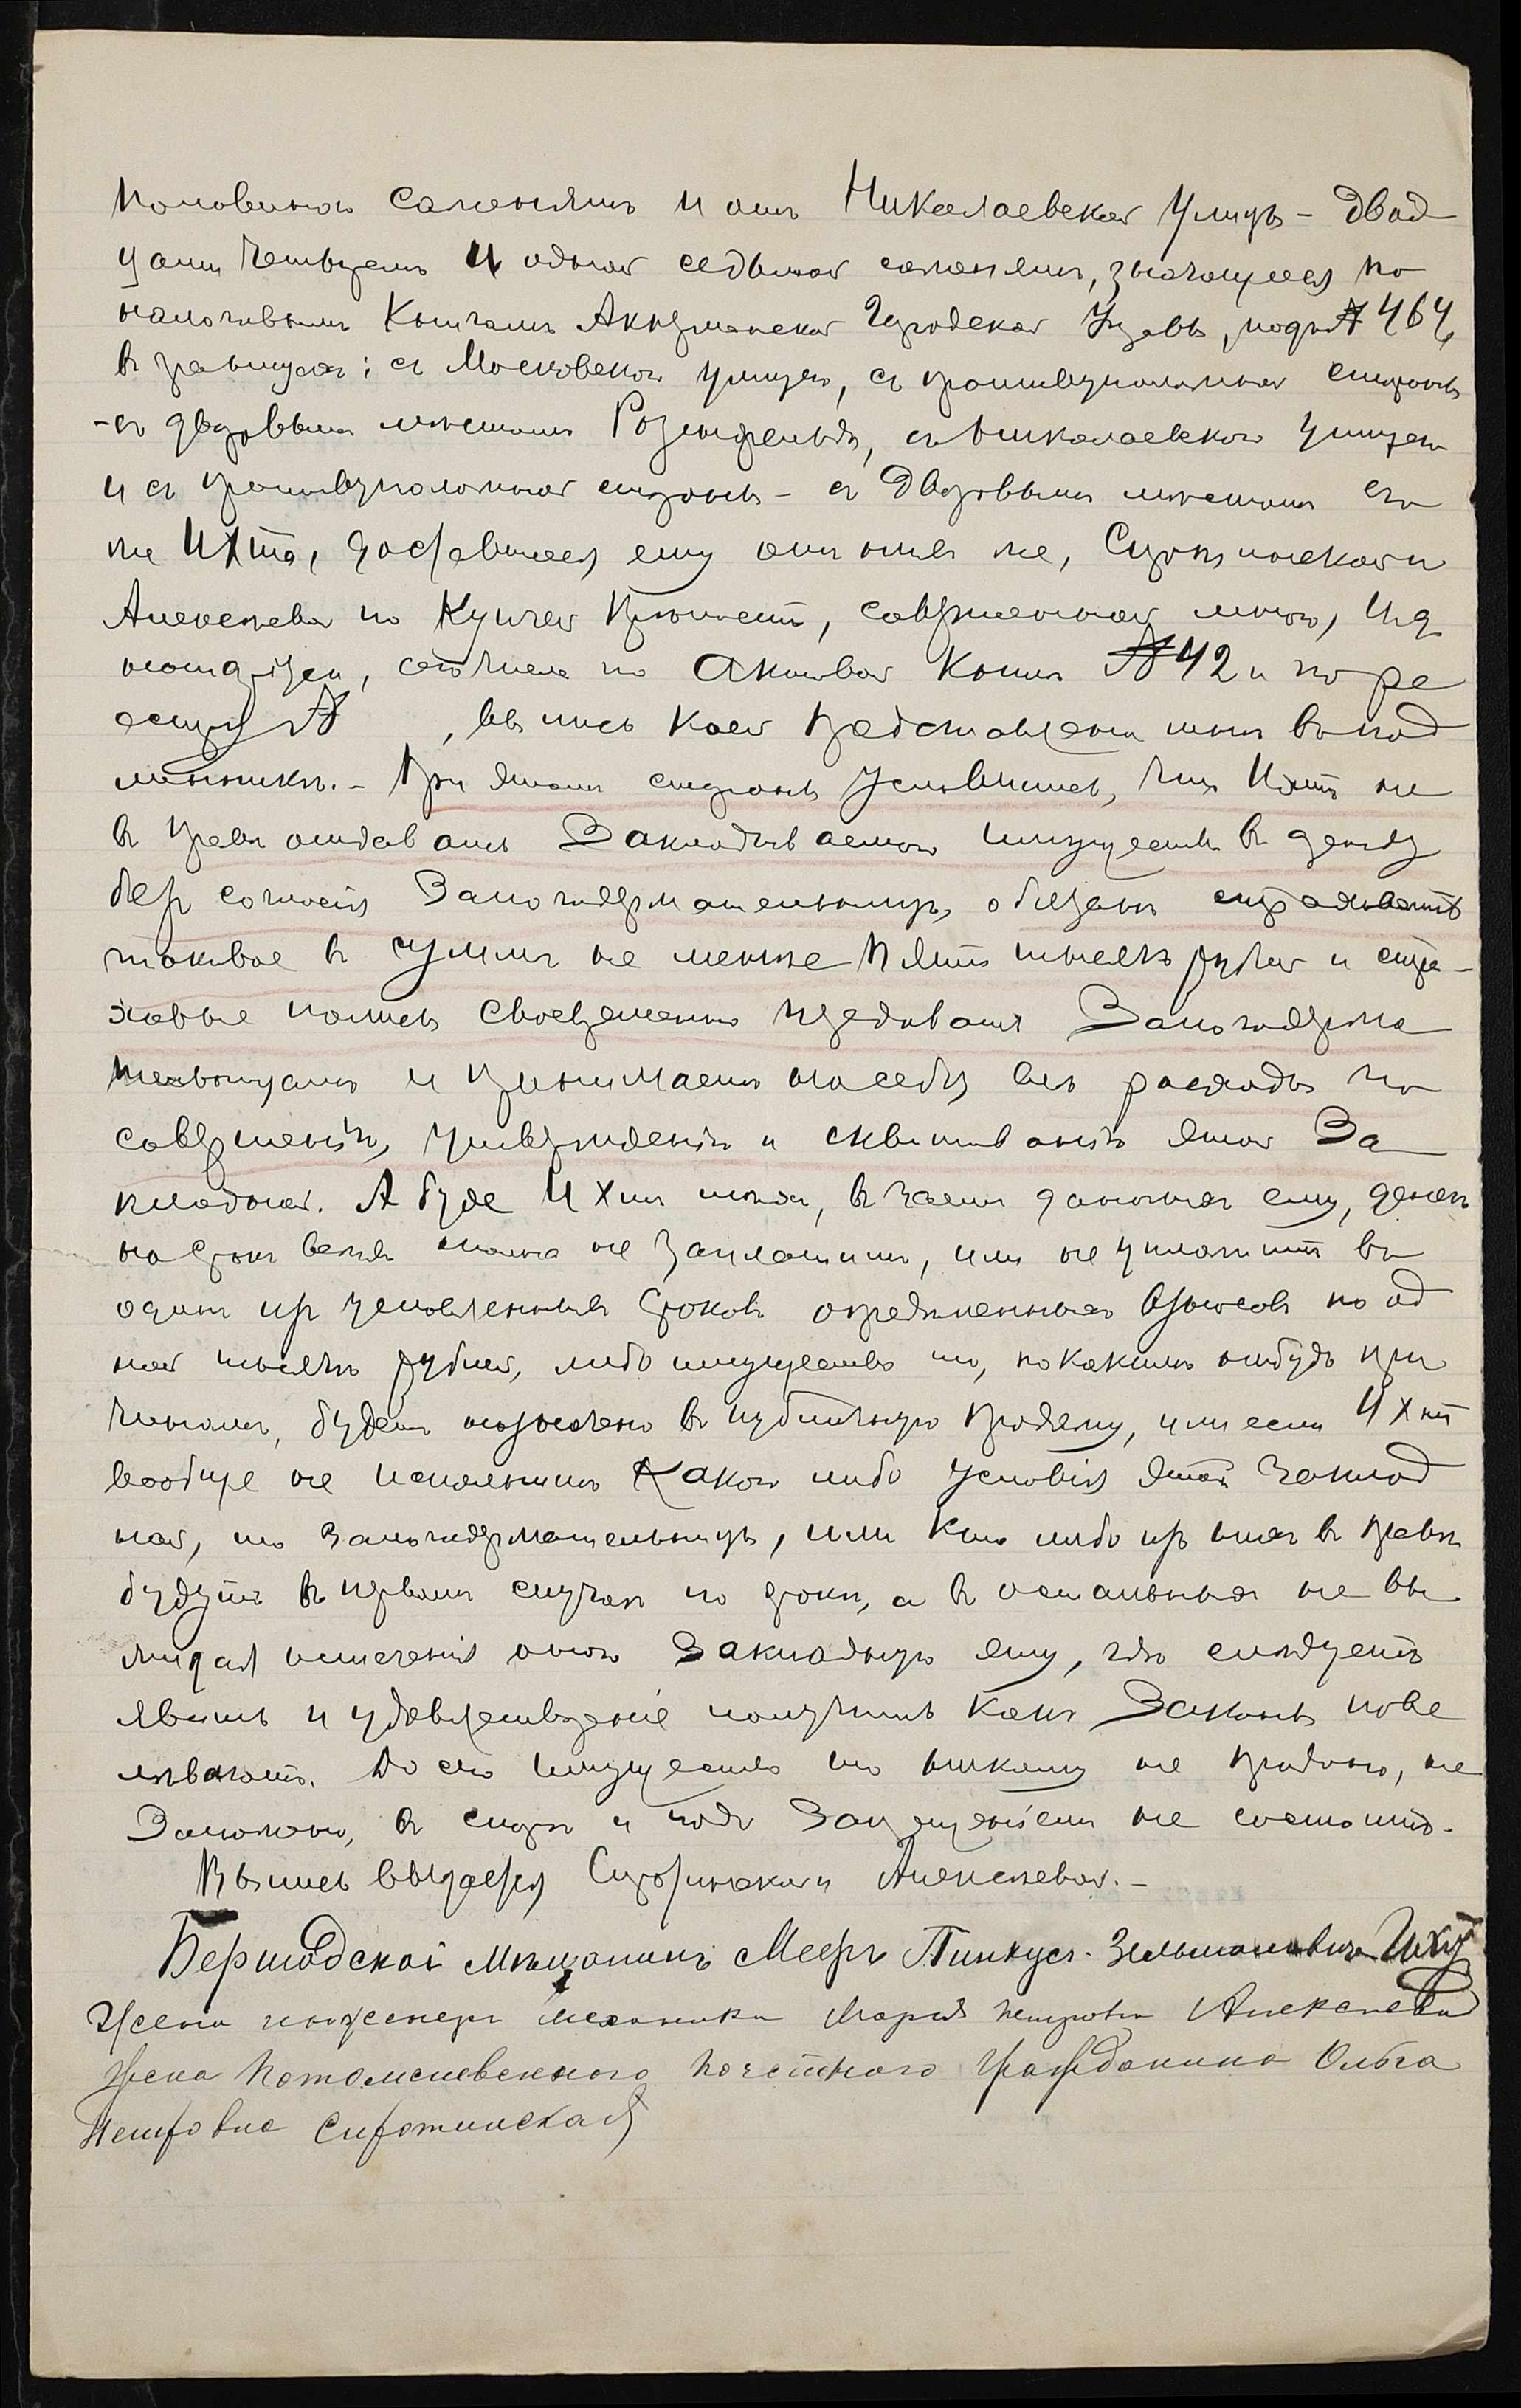 половиною саженямъ и отъ Николаевской улицы - двад
цати четыремъ и одной седьмой саженямъ, значущееся по
налоговымъ книгамъ Аккерманской Городской Управы, подъ № 464,
въ границахъ: съ Московскою улицею, съ противуположной стороны
- съ дворовымъ мѣстомъ Розенфельда, съ Николаевскою улицею
и съ противуположной стороны - съ дворовымъ мѣстомъ его
же Ихта, доставшееся ему отъ нихъ же, Сиротинской и
Алексѣевой по купчей крѣпости, совершенной мною, И. д.
нотаріуса, сего числа по актовой книгѣ № 42 и по ре
естру № , выпись коей представлена мнѣ въ под
линникѣ. - При этомъ стороны условились, что Ихтъ не
въ правѣ отдавать закладываемого имущества въ аренду
безъ согласія залогодержательницъ, обязанъ страховать
таковое въ суммѣ не менѣе пяти тысячъ рублей и стра-
ховые полисы своевременно передавать залогодержа
тельницамъ и принимаетъ на себя всѣ расходы по
совершенію, утвержденію и сквитованію этой за
кладной. А буде Ихтъ тѣхъ, въ заемъ данныхъ ему, денегъ
на срокъ всѣхъ сполна не заплатитъ, или не уплатитъ въ
одинъ изъ условленныхъ сроковъ опредѣленныхъ взносовъ по од
ной тысячѣ рублей, либо имущество то, по какимъ нибудь при
чинамъ, будетъ назначено въ публичную продажу, или если Ихтъ
вообще не исполнитъ какого либо условія этой заклад
ной, то залогодержательницы, или кто либо изъ нихъ въ правѣ
будутъ въ первомъ случаѣ по срокѣ, а въ остальныхъ не вы
жидая истеченія оного закладную эту, гдѣ слѣдуетъ
явить и удовлетвореніе получить какъ законы пове
лѣваютъ. До сего имущество то никому не продано, не
заложено, въ спорѣ и подъ запрещеніемъ не состоитъ.
Выпись выдается Сиротинской и Алексѣевой. -
Бершадскій мѣщанинъ Мееръ Пинкусъ-Зельмановичъ Ихтъ
Жена инженеръ механика Марія Петровна Алексѣева
Жена Потомственного Почетного Гражданина Ольга
Петровна Сиротинская